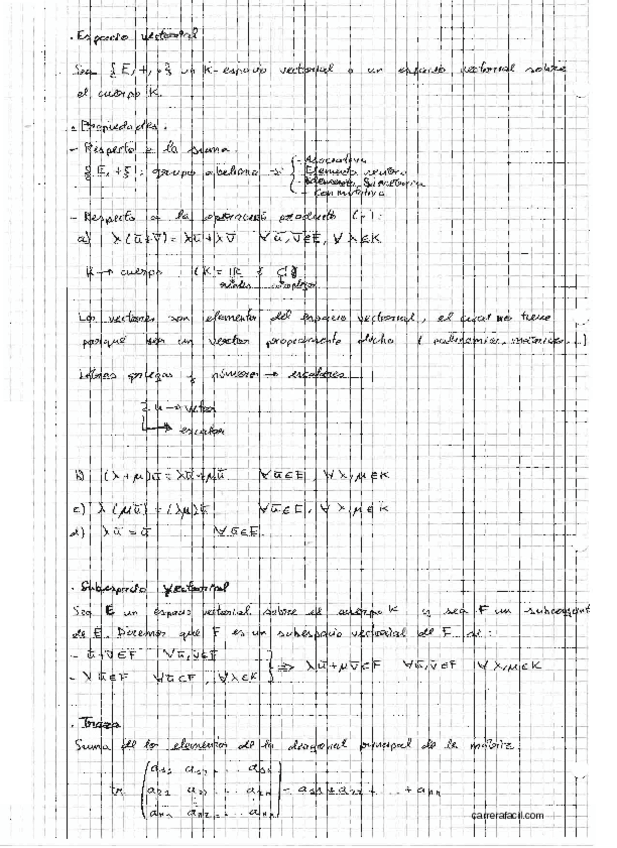 · Espacio vectorial
Sea {E, +, ·} un K-espacio vectorial o un espacio vectorial sobre
el cuerpo K.
- Propiedades.
- Respecto a la suma.
{E, +}: grupo abeliano → { - Asociativa
- Elemento neutro
- Elemento Simétrico
- Conmutativa
- Respecto a la operación producto (·):
a) λ(ū+v̄) = λū+λv̄ ∀ū,v̄∈E, ∀λ∈K
K → cuerpo (K = ℝ ó ℂ)
reales complejos
Los vectores son elementos del espacio vectorial, el cual no tiene
porqué ser un vector propiamente dicho (polinomios, matrices...)
Letras griegas y números → escalares
λ ū → vector
→ escalar
b) (λ+μ)ū = λū+μū ∀ū∈E, ∀λ,μ∈K
c) λ(μū) = (λμ)ū ∀ū∈E, ∀λ,μ∈K
d) λū = ū ∀ū∈E
· Subespacio vectorial
Sea E un espacio vectorial sobre el cuerpo K y sea F un subconjunto
de E. Diremos que F es un subespacio vectorial de F si:
- ū+v̄∈F ∀ū,v̄∈F
- λū∈F ∀ū∈F, ∀λ∈K } ⟹ λū+μv̄∈F ∀ū,v̄∈F ∀λ,μ∈K
· Traza
Suma de los elementos de la diagonal principal de la matriz.
a₁₁ a₁₂ ... a₁ₙ
tr a₂₁ a₂₂ ... a₂ₙ = a₁₁+a₂₂+...+aₙₙ
aₙ₁ aₙ₂ ... aₙₙ
carrerafacil.com